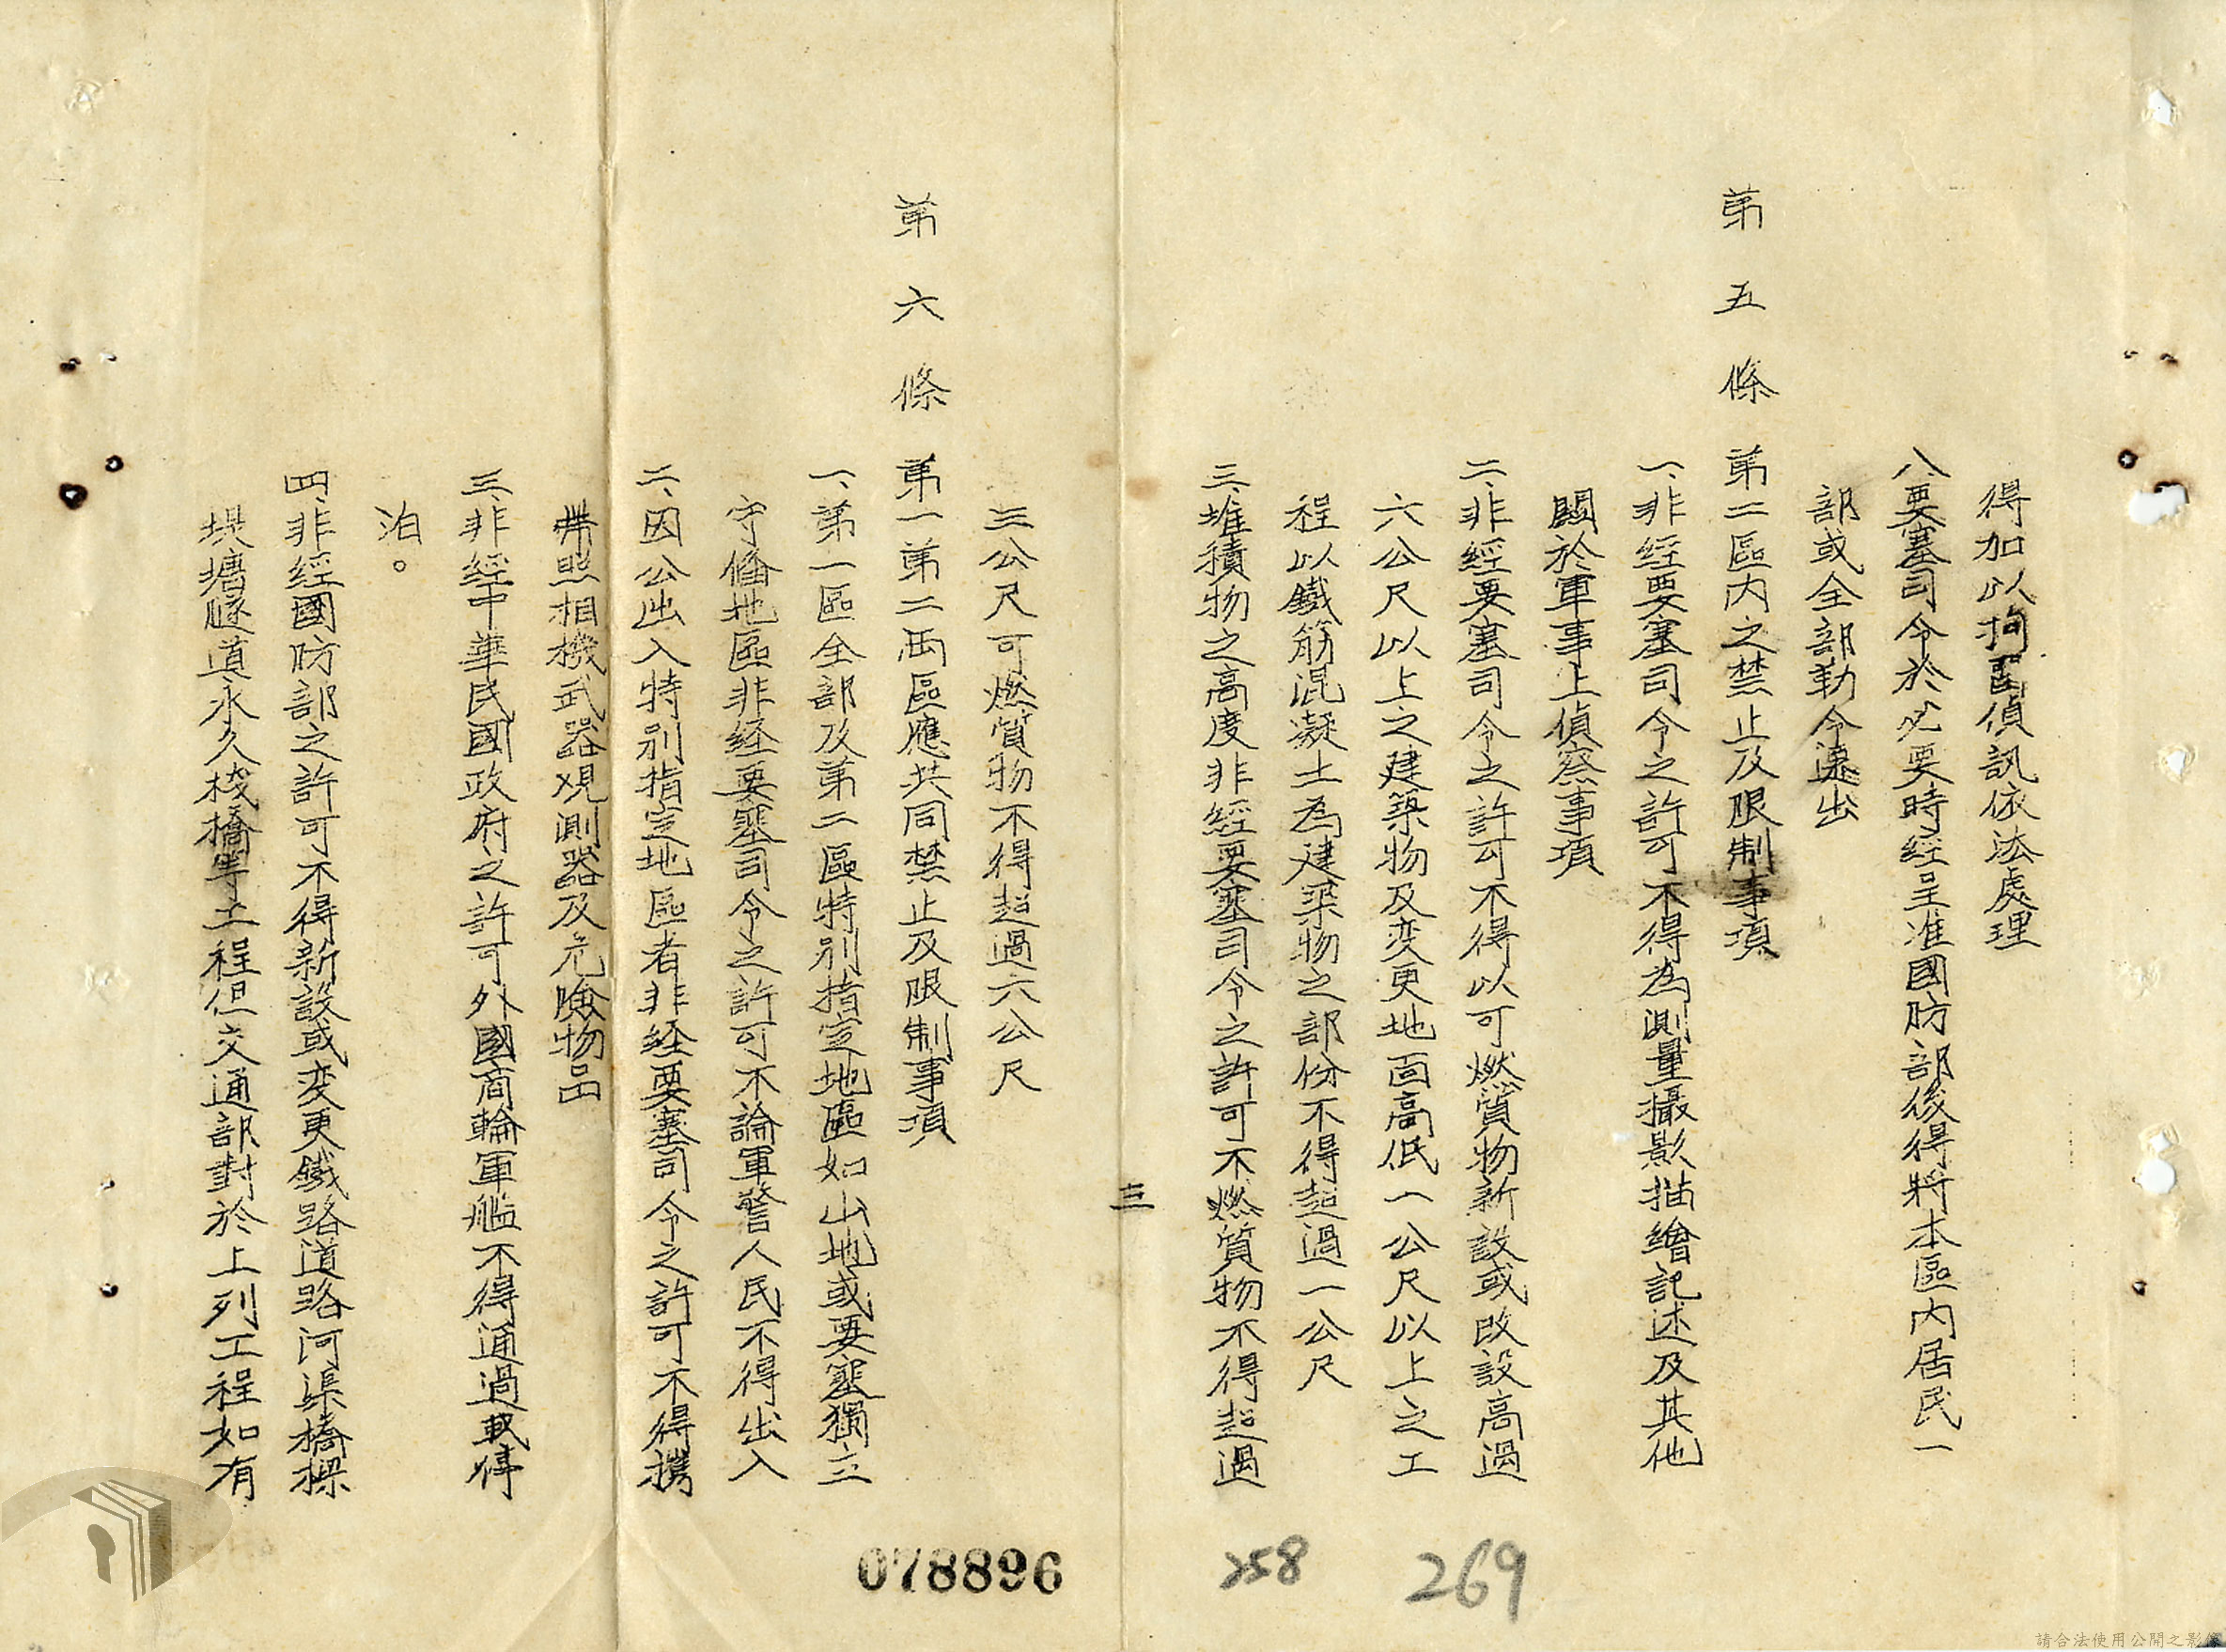 得加以拘留偵訊依法處理
八、要塞司令於必要時経呈准國防部後得將本區内居民一
部或全部勒令遷出
第五條　第二區内之禁止及限制事項
一、非経要塞司令之許可不得為測量攝影描繪記述及其他
關於軍事上偵察事項
二、非經要塞司令之許可不得以可燃質物新設或改設高過
六公尺以上之建築物及变更地面高低一公尺以上之工
程以鐵筋混凝土為建築物之部份不得起過一公尺
三、堆積物之高度非經要塞司令之許可不燃質物不得起過
三
三公尺可燃質物不得起過六公尺
第六條　第一第二两區應共同禁止及限制事項
一、第一區全部及第二區特別指定地區如山地或要塞獨立
守俻地區非经要塞司令之許可不論軍警人民不得出入
二、因公出入特別指定地區者非经要塞司令之許可不得携
帶照相機武器观測器及危險物品
三、非經中華民國政府之許可外國商輪軍艦不得通過或停
泊。
四、非經國防部之許可不得新設或变更鐵路道路河渠橋樑
堤塘隧道永久棧橋等工程但交通部對於上列工程如有
078896
258
269
請合法使用公開之影像